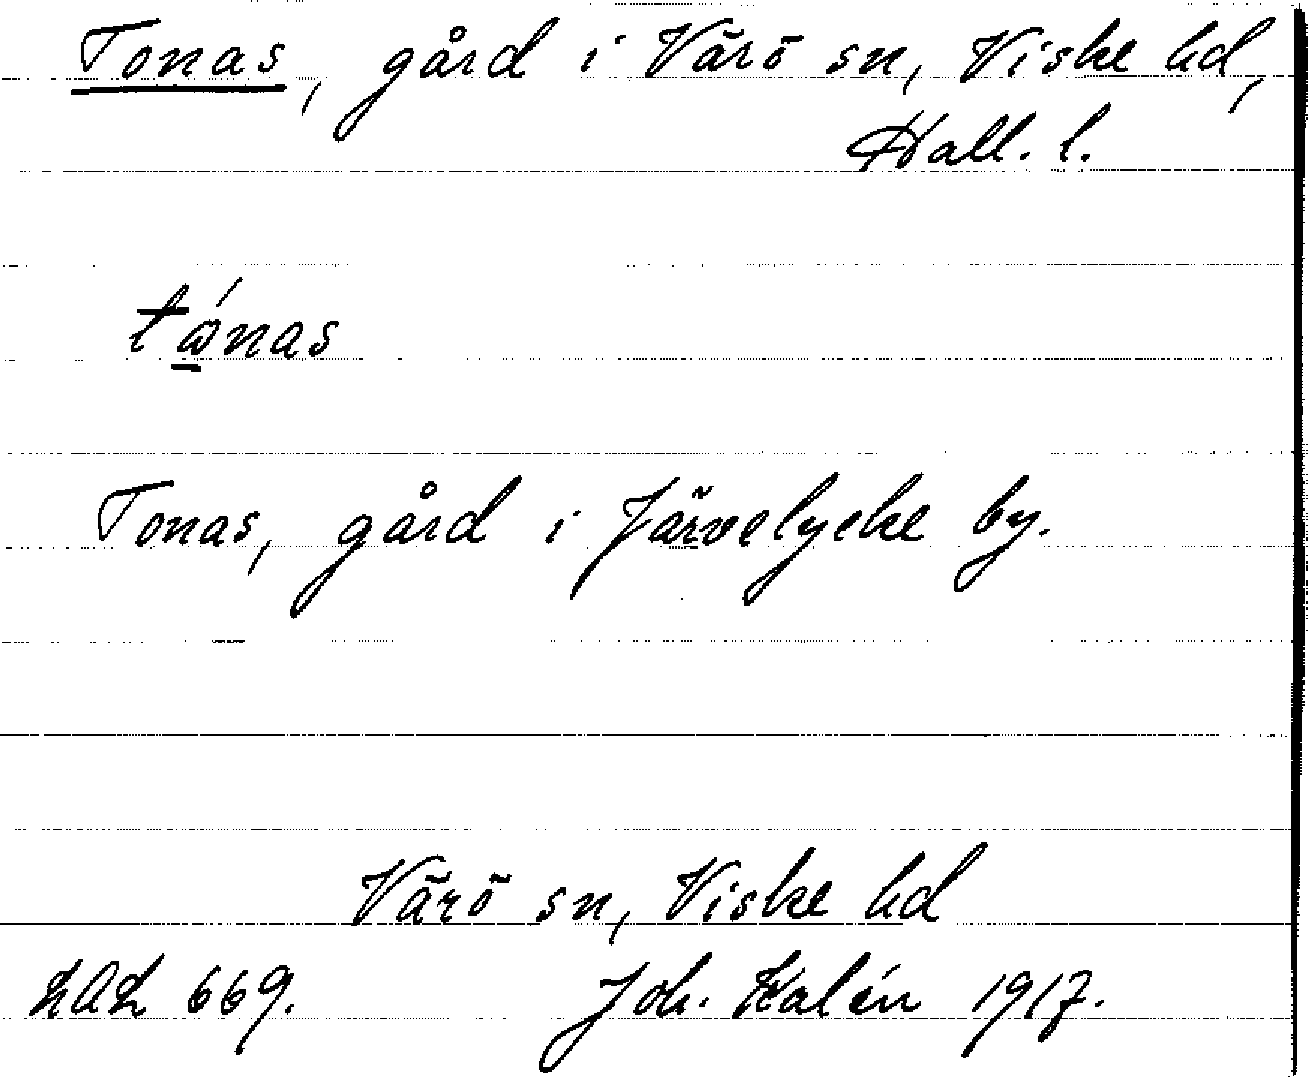 Tonas, gård i Värö sn, Viske hd,
Hall. l.
tώnas
Tonas, gård i Järvelycke by.
Värö sn, Viske hd
LAL 669. Joh. Kalén 1917.